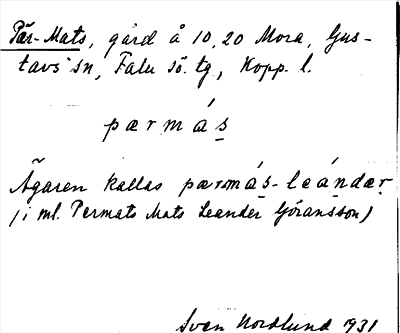 Pär-Mats, gård å 10,20 Mora, Gus-
tavs sn, Falu sö. tg, Kopp. l.
pærmás̱
Ägaren kallas pærmás̱-leándær̲
(i ml. Permats Mats Leander Göransson)
Sven Nordlund 1931